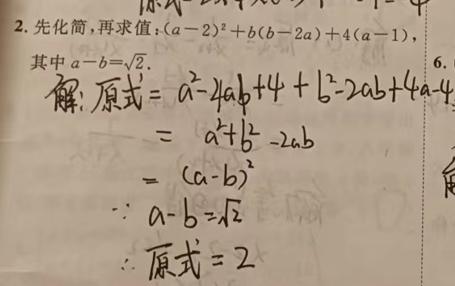 2. 先化简,再求值:(a-2)²+b(b-2a)+4(a-1),
其中 a-b=√2.
6.
解: 原式 = a²-4ab+4+b²-2ab+4a-4
= a²+b²-2ab
= (a-b)²
∵ a-b=√2
∴ 原式=2